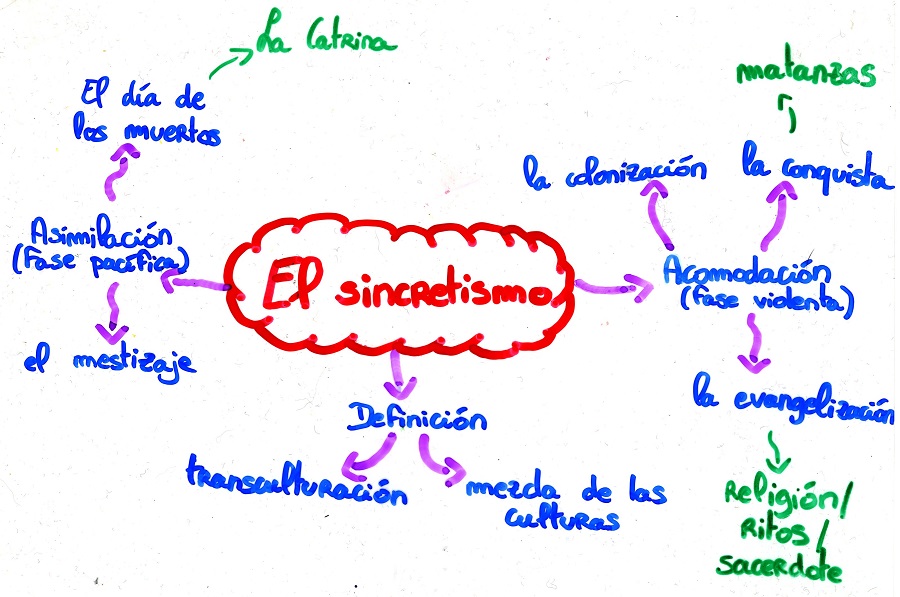 La Catrina
El día de
los muertos
Asimilación
(fase pacífica)
el mestizaje
El sincretismo
Definición
transculturación
mezcla de las
culturas
matanzas
la colonización
la conquista
Acomodación
(fase violenta)
la evangelización
Religión/
Ritos/
sacerdote